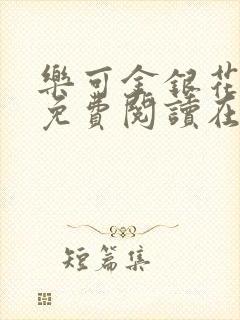 樂可金銀花
免費閱讀在
短篇集